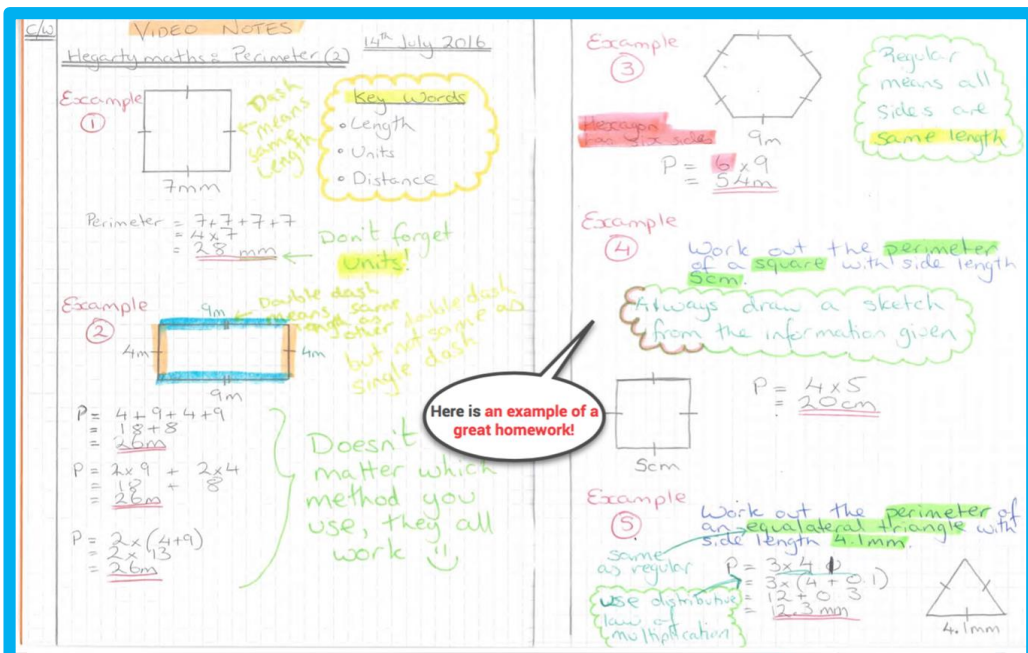 c/w
VIDEO NOTES
14th July 2016
Hegartymaths: Perimeter (2)
Example
1
7mm
Dash
means
same
length
Key Words
• Length
• Units
• Distance
Perimeter = 7+7+7+7
= 4x7
= 28 mm
Don't forget
Units!
Example
2
9m
4m
4m
9m
Double dash
means same
length as
other double dash
but not same as
single dash
P = 4+9+4+9
= 18+8
= 26m
P = 2x9 + 2x4
= 18 + 8
= 26m
P = 2x(4+9)
= 2x13
= 26m
Doesn't
matter which
method you
use, they all
work
Here is an example of a
great homework!
Example
3
9m
Regular
means all
sides are
same length
Hexagon
has six sides
P = 6x9
= 54m
Example
4
Work out the perimeter
of a square with side length
5cm.
Always draw a sketch
from the information given
5cm
P = 4x5
= 20cm
Example
5
Work out the perimeter of
an equalateral triangle with
side length 4.1mm.
same
as regular
use distributive
law of
multiplication
P = 3x4.1
= 3x(4+0.1)
= 12+0.3
= 12.3mm
4.1mm